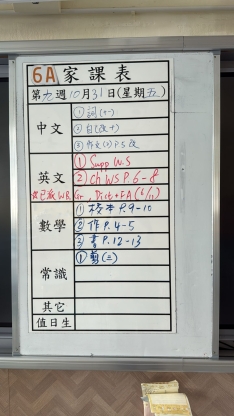 6A 家課表
第九週10月31日(星期五)
中文
① 詞(十一)
② 自(改十)
③ 作文(2) P.5 改
英文
① Supp W.S
② Ch WS P.6-8
Gr, Dict+FA (6/11)
數學
① 校本 P.9-10
② 作 P.4-5
③ 書 P.12-13
常識
①
其它
值日生